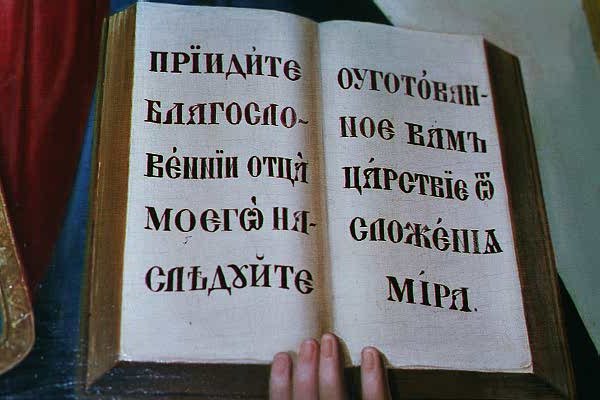 прїиди́те
благосло-
ве́ннїи отца̀
моегѡ̀ на-
слѣдꙋйте
оугото́ван-
ное вамъ
ца́рствїе ѿ
сложе́нїѧ
мі́ра.